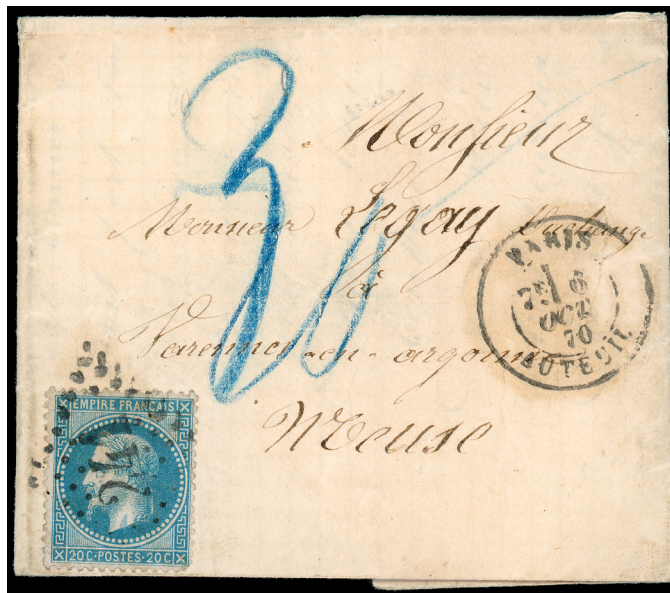 30
Monsieur
Monsieur Legay
à
Varennes-en-argonne
Meuse
PARIS
7E 6
OCT
70
AUTEUIL
EMPIRE FRANÇAIS
24
20 C·POSTES·20 C